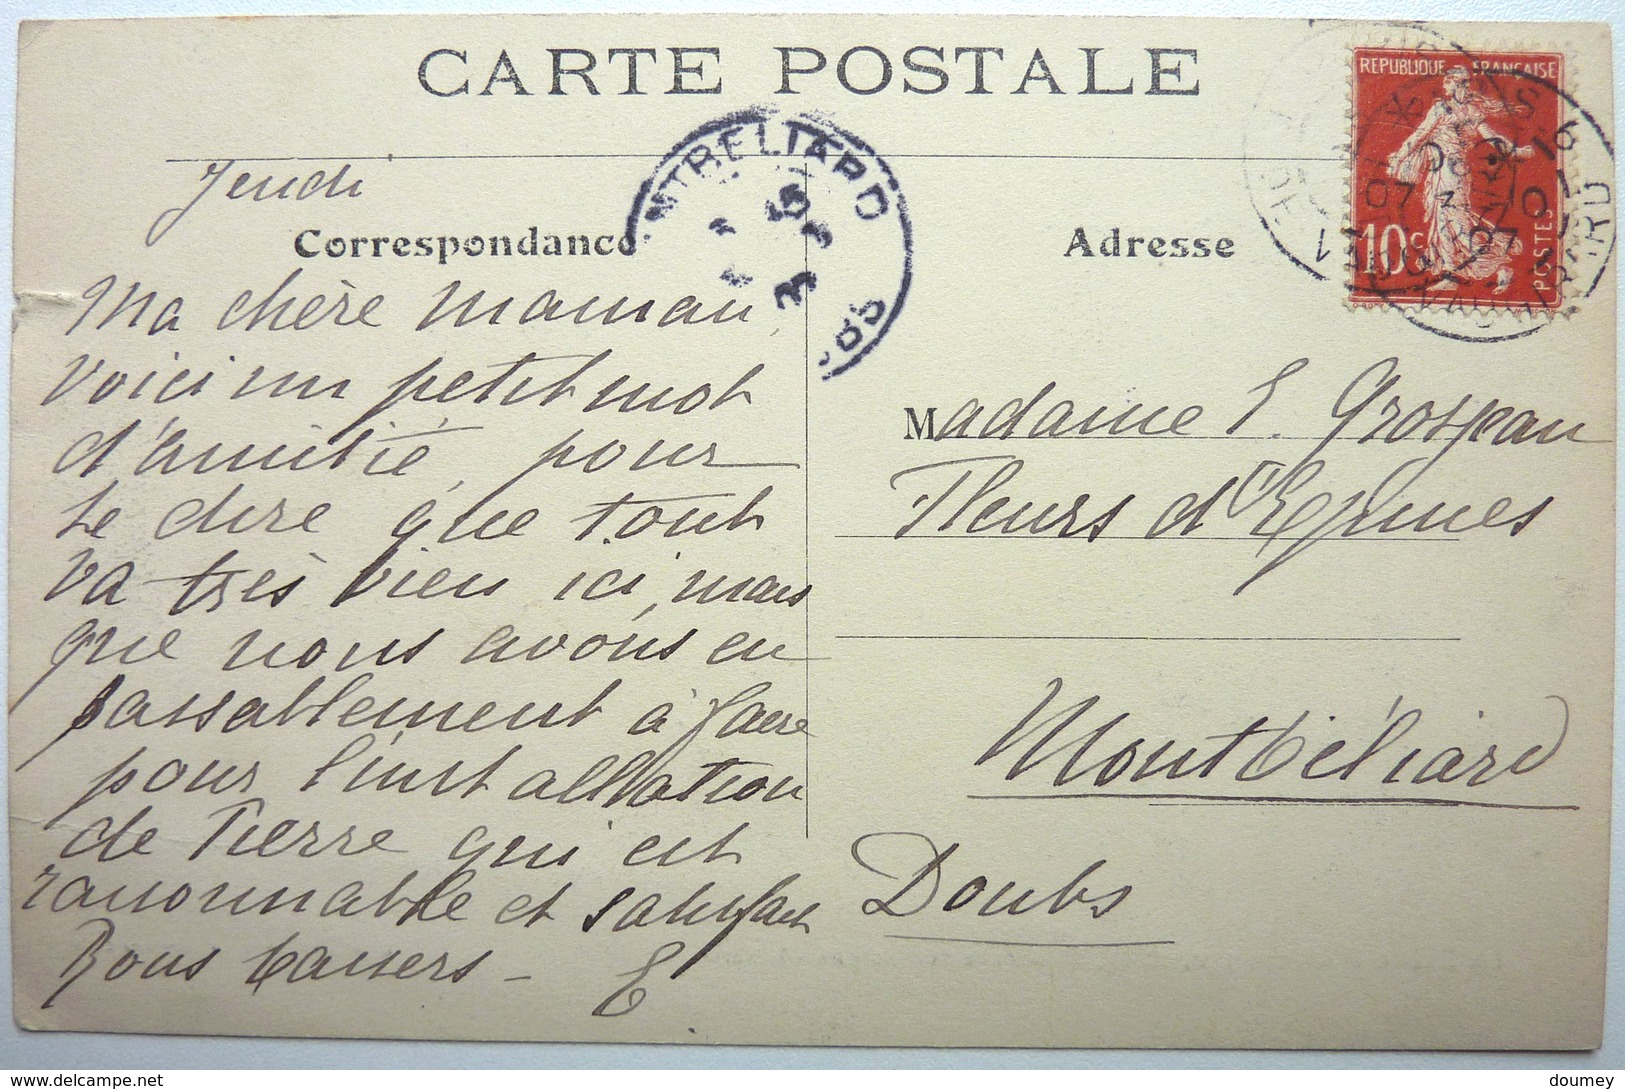 CARTE POSTALE
Jeudi
Correspondance
Ma chère maman,
Voici un petit mot
d'amitié, pour
te dire que tout
va très bien ici, mais
que nous avons eu
passablement à faire
pour l'installation
de Pierre qui est
raisonnable et satisfait
Bons baisers - E
NTBELIARD
REPUBLIQUE FRANÇAISE
10c
POSTES
Adresse
Madame E. Grosjean
Fleurs d'Epines
Montbéliard
Doubs
doumey